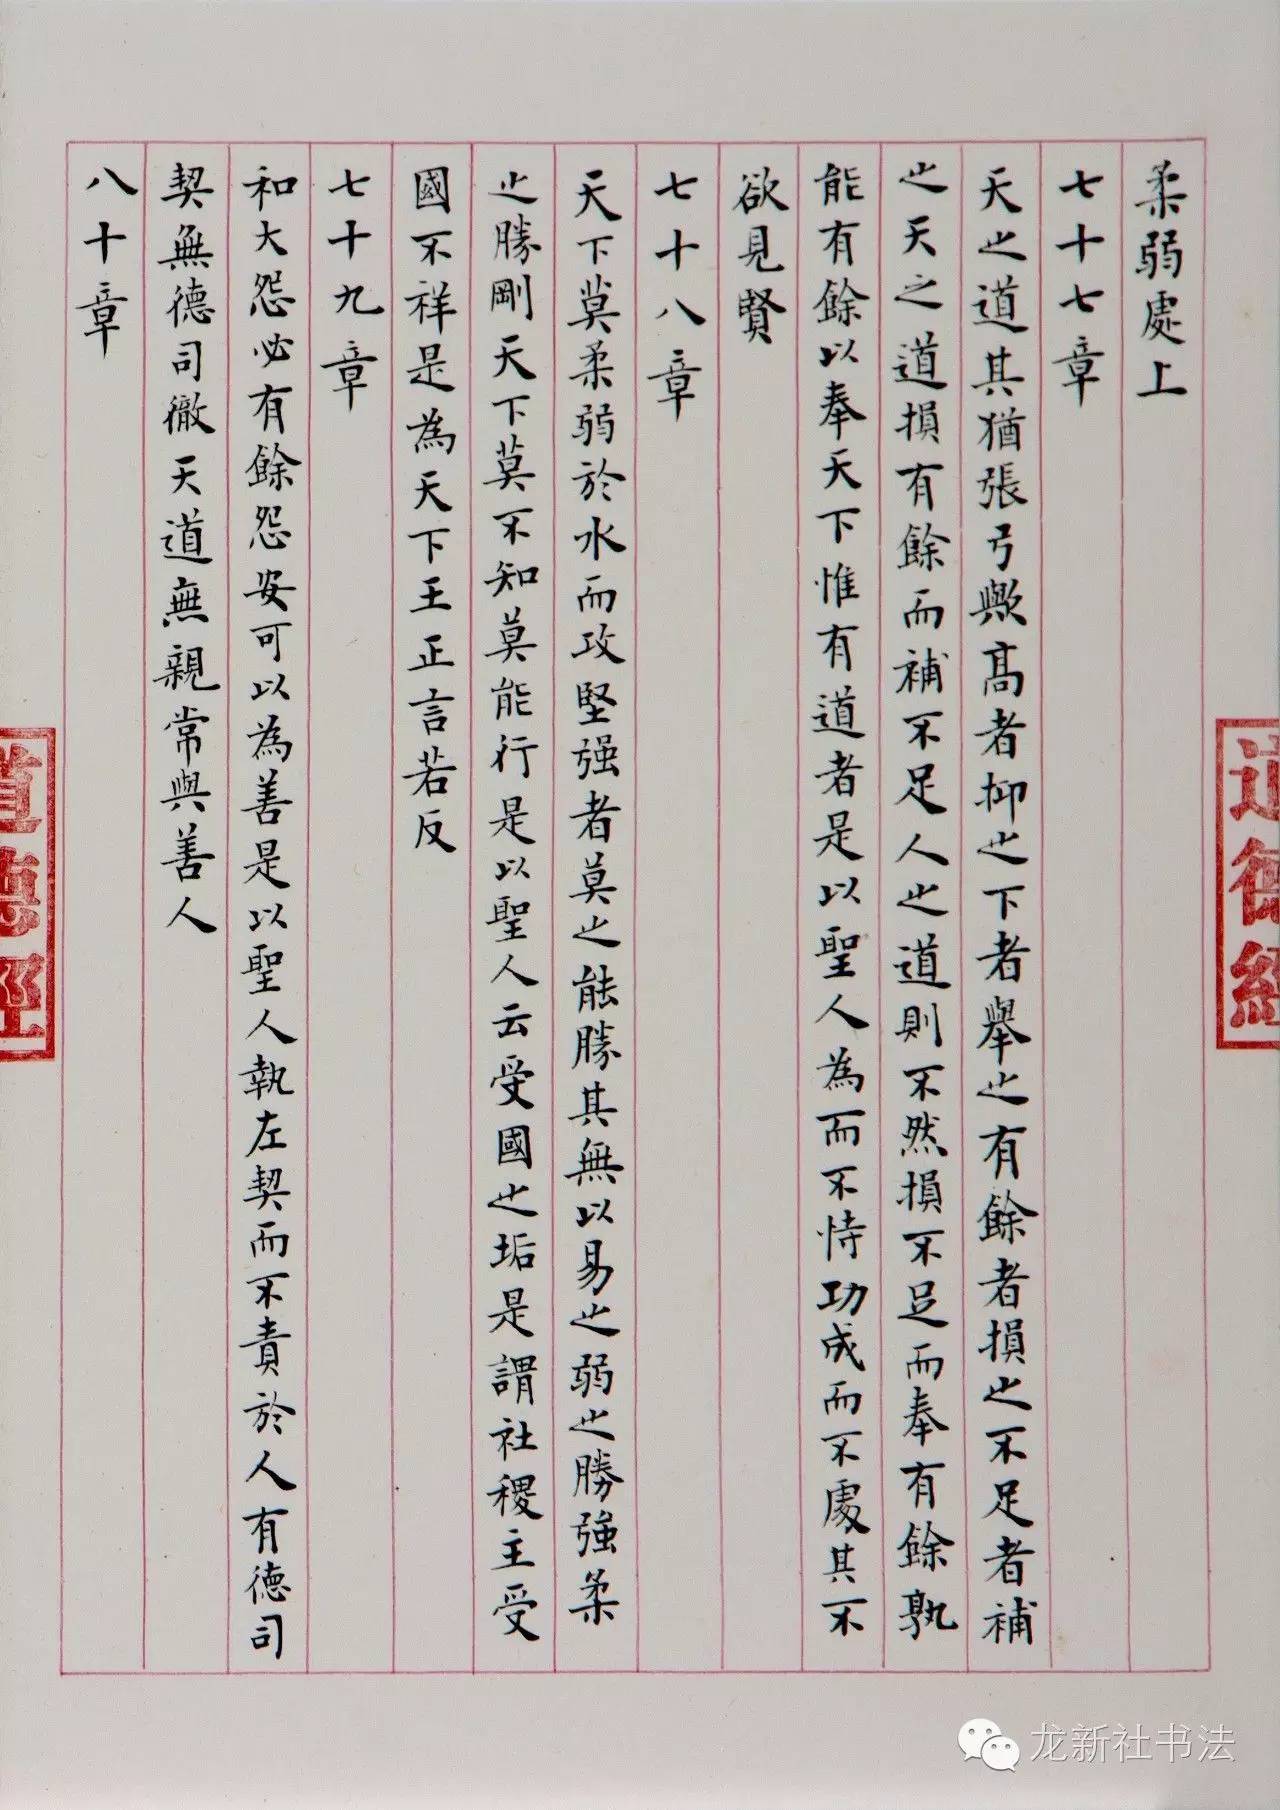 柔弱處上
七十七章
天之道其猶張弓歟高者抑之下者舉之有餘者損之不足者補
之天之道損有餘而補不足人之道則不然損不足而奉有餘孰
能有餘以奉天下惟有道者是以聖人為而不恃功成而不處其不
欲見賢
七十八章
天下莫柔弱於水而攻堅强者莫之能勝其無以易之弱之勝強柔
之勝剛天下莫不知莫能行是以聖人云受國之垢是謂社稷主受
國不祥是為天下王正言若反
七十九章
和大怨必有餘怨安可以為善是以聖人執左契而不責於人有德司
契無德司徹天道無親常與善人
八十章
道德經
道德經
龙新社书法